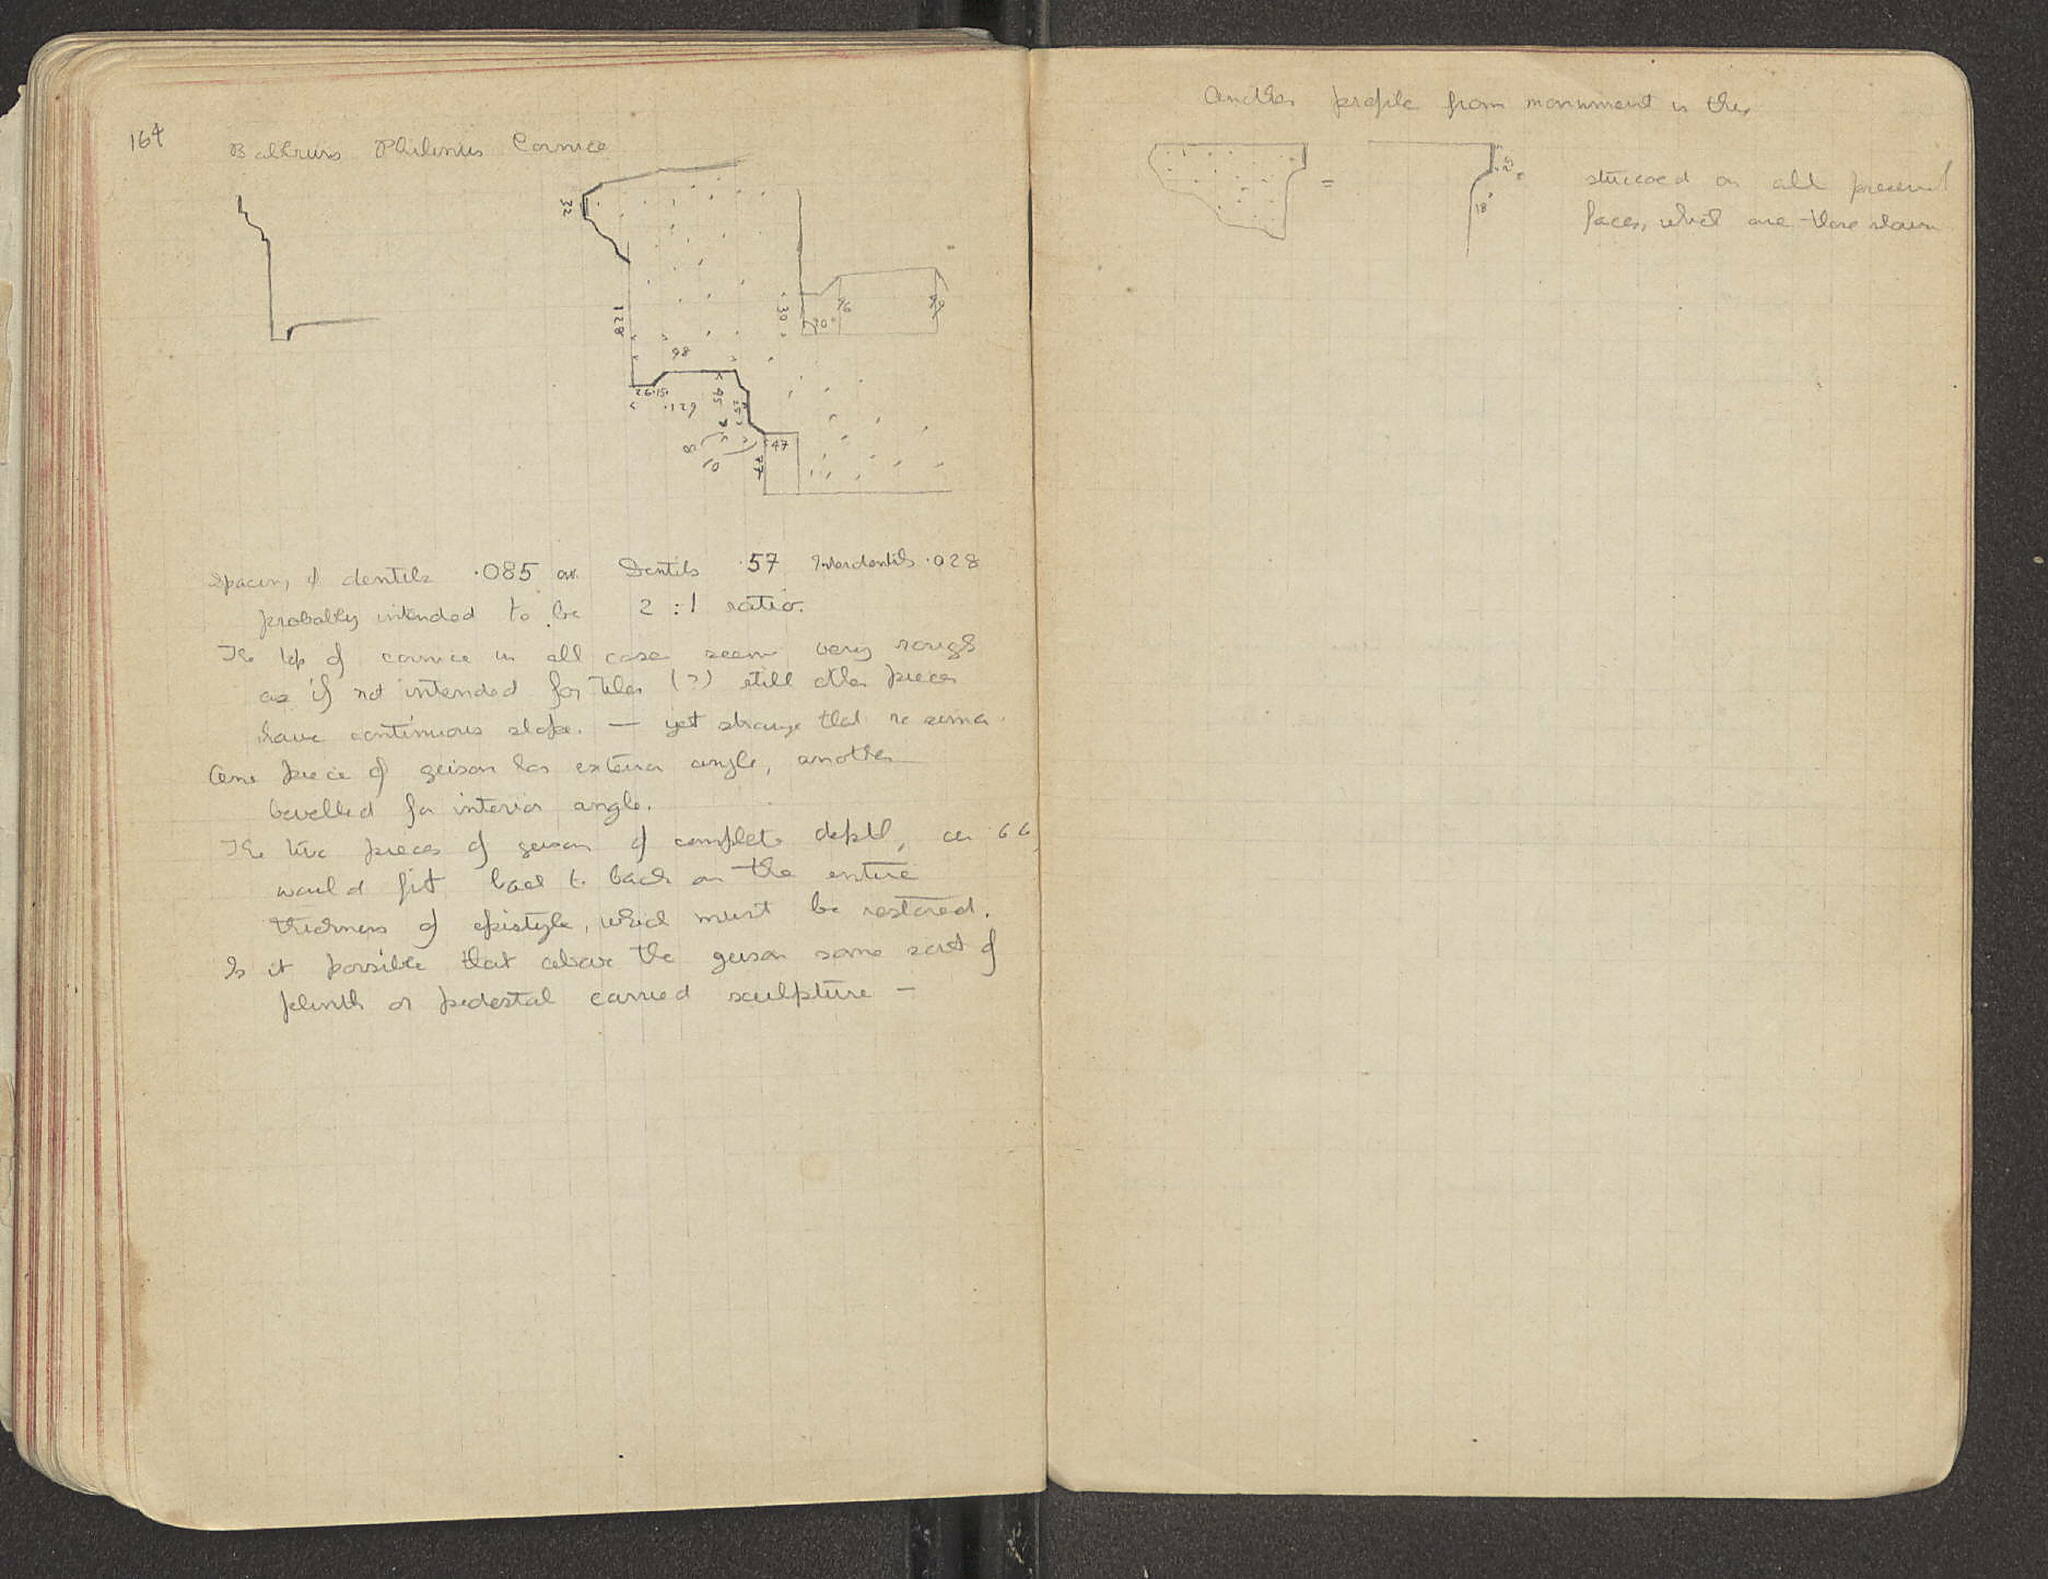 164
Babbius Philinus Cornice
32
128
98
26
15
129
95
25
47
77
8
10
30
30°
76
Spacing of dentils .085 av. Dentils .57 Interdentils .028
probably intended to be 2 : 1 ratio.
The top of cornice in all cases seems very rough
as if not intended for tiles (?) still other pieces
have continuous slope. — yet strange that no sima.
One piece of geison has exterior angle, another
bevelled for interior angle.
The two pieces of geison of complete depth, ca .66,
would fit back to back on the entire
thickness of epistyle, which must be restored.
Is it possible that above the geison some sort of
plinth or pedestal carried sculpture —
Another profile from monument is this,
=
18
stuccoed on all preserved
faces, which are those shown